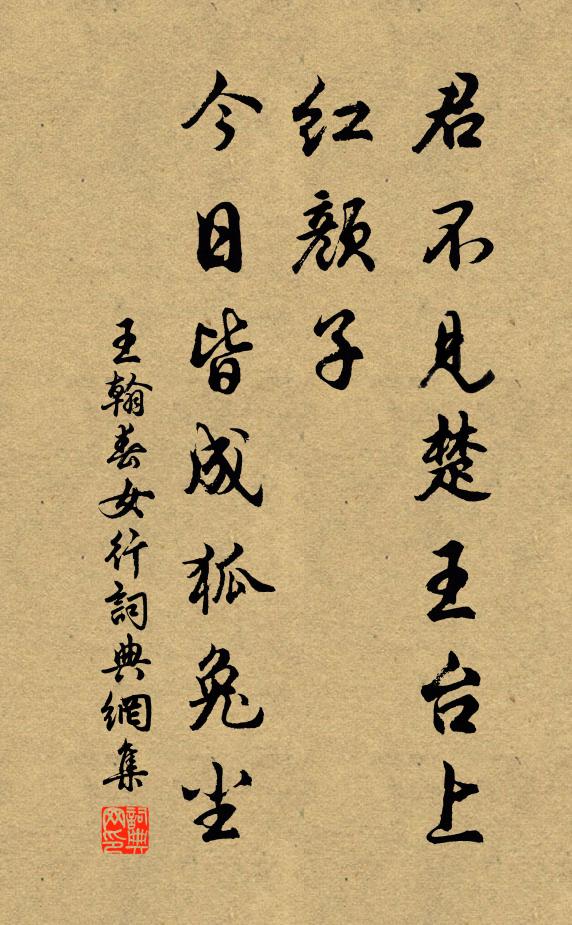 君不見楚王台上
紅顏子
今日皆成狐兔尘
王翰春女行詞典網集
詞典網印